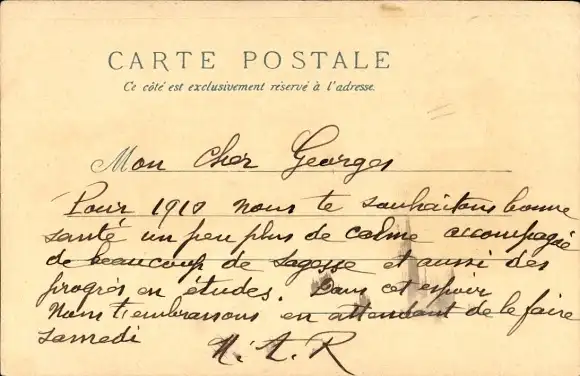 CARTE POSTALE
Ce côté est exclusivement réservé à l'adresse.
Mon cher Georges
Pour 1910 nous te souhaitons bonne
santé un peu plus de calme accompagné
de beaucoup de sagesse et aussi des
progrès en études. Dans cet espoir
Nous t'embrassons en attendant de le faire
samedi
N. A. R